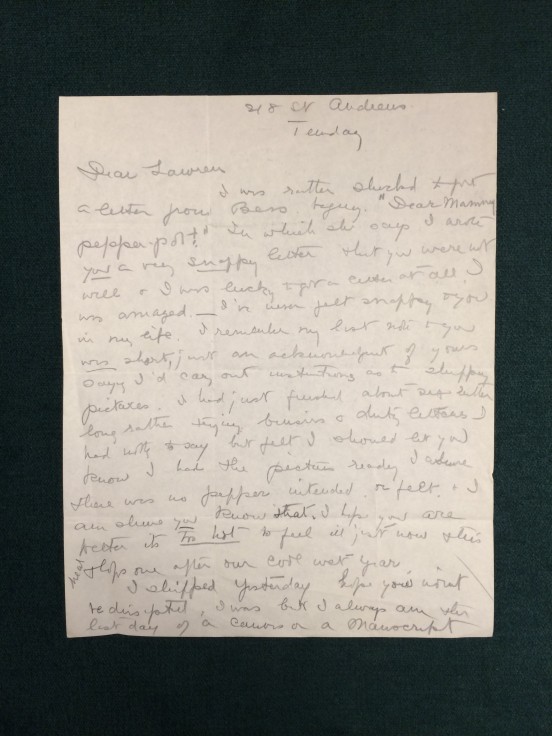 218 St Andrews.
Tuesday
Dear Lawren
I was rather shocked to get
a letter from Bess saying. "Dear Mammy
pepper-pot!" In which she says I wrote
you a very snappy letter & that you were not
well & I was lucky to get a letter at all. I
was amazed. — I've never felt snappy to you
in my life. I remember my last note to you
was short, just an acknowledgment of yours
saying I'd carry out instructions as to shipping
pictures. I had just finished about six rather
long rather trying business & duty letters I
had nothing to say but felt I should let you
know I had the pictures ready I assure
there was no pepper intended. or felt. & I
am sure you know that. I hope you are
better its too hot to feel ill just now this
heat flops one after our cool wet year
I shipped yesterday hope you wont
be disappointed, I was but I always am the
last day of a canvas or a Manuscript